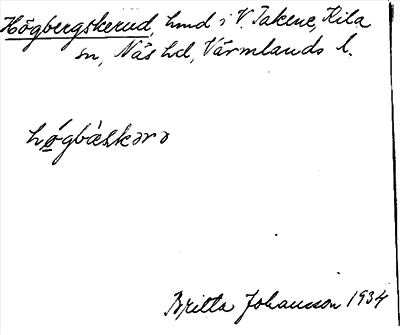 Högbergskerud, hmd i V. Takene, Kila
sn, Näs hd, Värmlands l.
hǿgbæ̀skərə
Britta Johansson 1934